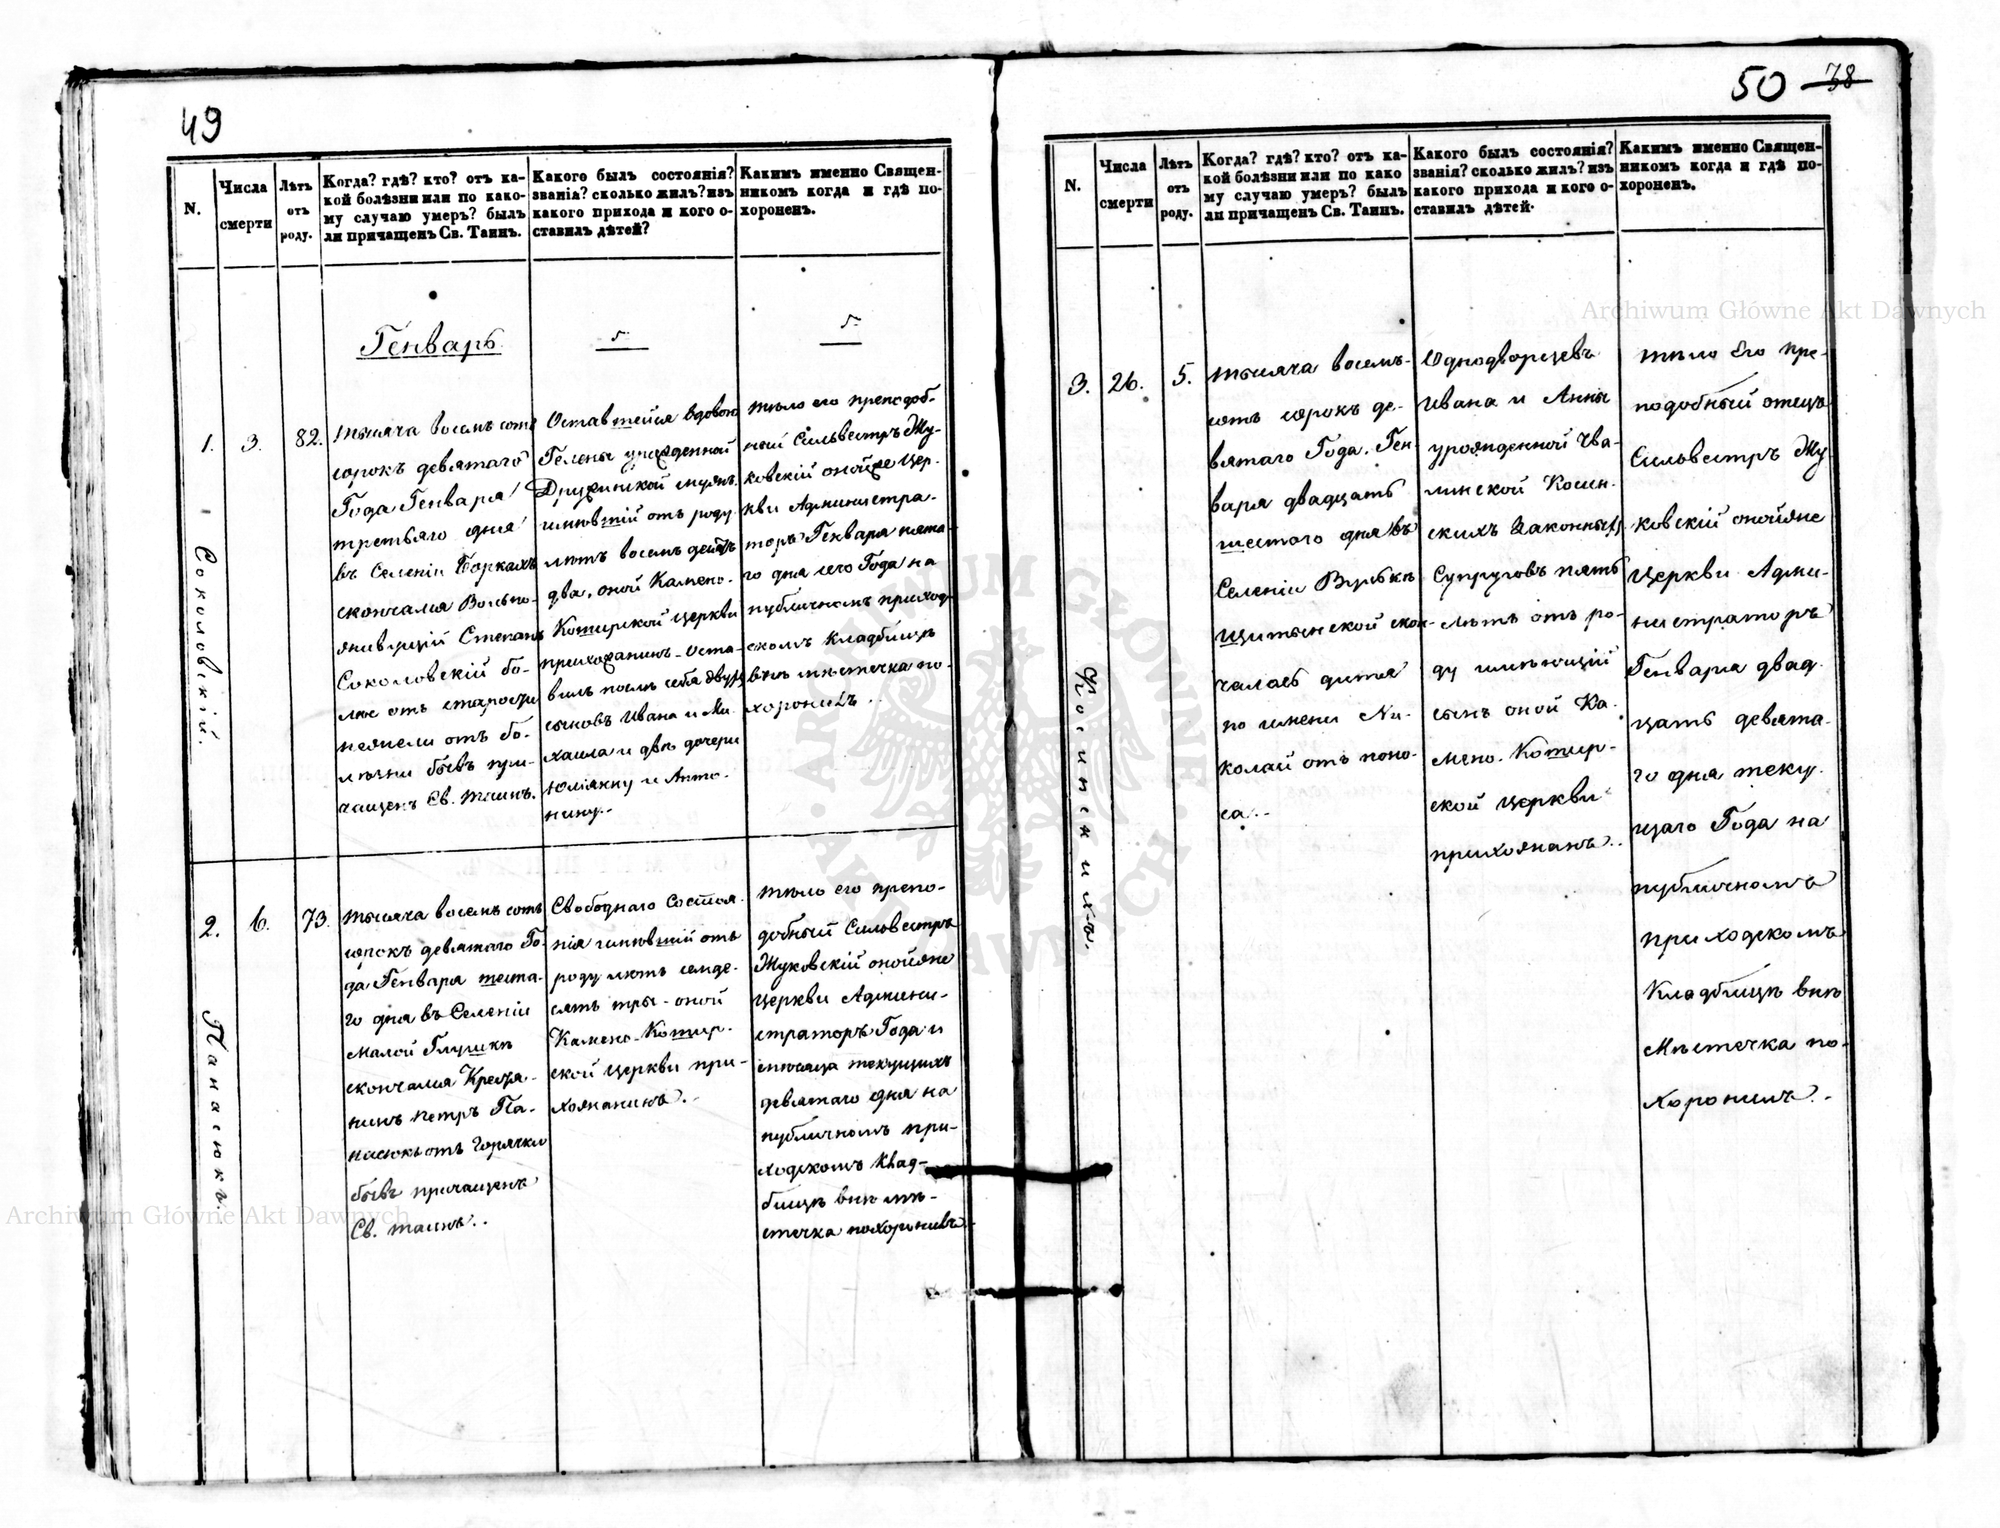 49
N.
Числа
смерти
Лѣтъ
отъ
роду.
Когда? гдѣ? кто? отъ ка-
кой болѣзни или по како-
му случаю умеръ? былъ
ли причащенъ Св. Таинъ.
Какого былъ состоянія?
званія? сколько жилъ? изъ
какого прихода и кого о-
ставилъ дѣтей?
Каким именно Священ-
никомъ когда и гдѣ по-
хороненъ.
Генварь
1.
3.
82.
Соколовскій.
тысяча восемъ сотъ
сорокъ девятаго
Года Генваря
третьяго дня
въ Селеніи Боркахъ
скончался Вольно-
живущій Степанъ
Соколовскій бо-
лѣе отъ старости
нежели отъ бо-
лѣзни бывъ при-
чащенъ Св. таинъ.
Оставшейся вдовою
Гелены урожденной
Дружинской мужъ
имѣвшій отъ роду
лѣтъ восемъ десятъ
два, оной Камено-
Коширской церкви
прихожанинъ оста-
вилъ послѣ себя двухъ
сыновъ Ивана и Ми-
хаила и двѣ дочери
Юліянну и Анто-
нину.
тѣло его преподоб-
ный Сильвестръ Жу-
ковскій онойже Цер-
кви Администра-
торъ Генваря пята-
го дня сего Года на
публичномъ приход-
скомъ кладбищѣ
внѣ мѣстечка по-
хоронилъ..
2.
6.
73.
Панасюкъ.
тысяча восемъ сотъ
сорокъ девятаго Го-
да Генваря шеста-
го дня въ Селеніи
Малой Глушкѣ
скончался Крестя-
нинъ Петръ Па-
насюкъ отъ Горячки
бывъ причащенъ
Св. таинъ..
Свободнаго Состоя-
нія имѣвшій отъ
роду лѣтъ семде-
сятъ три - оной
Камено-Кошир-
ской Церкви при-
хожанинъ.
тѣло его препо-
добный Сильвестръ
Жуковскій онойже
Церкви Админи-
страторъ Года и
мѣсяца текущихъ
девятаго дня на
публичномъ при-
ходскомъ клад-
бищѣ внѣ мѣ-
стечка похоронилъ.
50 38
N.
Числа
смерти
Лѣтъ
отъ
роду.
Когда? гдѣ? кто? отъ ка-
кой болѣзни или по како
му случаю умеръ? былъ
ли причащенъ Св. Таинъ.
Какого былъ состоянія?
званія? сколько жилъ? изъ
какого прихода и кого о-
ставилъ дѣтей.
Какимъ именно Священ-
никомъ когда и гдѣ по-
хороненъ.
3.
26.
5.
тысяча восемъ-
сотъ сорокъ де-
вятаго Года. Ген-
варя двадцать
шестого дня въ
Селеніи Вулькѣ
Щитынской скон-
чалась дитя
по имени Ни-
колай отъ поно-
са..
Однодворцевъ
Ивана и Анны
урожденной Хва-
линской Косин-
скихъ Законныхъ
Супруговъ пять
лѣтъ отъ ро-
ду имѣющій
сынъ оной Ка-
мено-Кошир-
ской Церкви
прихожанъ..
тѣло Его пре-
подобный отецъ
Сильвестръ Жу
ковскій онойже
Церкви Адми-
нистраторъ
Генваря двад-
цать девята-
го дня теку-
щаго Года на
публичномъ
приходскомъ
Кладбищѣ внѣ
Мѣстечка по-
хоронилъ.
Archiwum Główne Akt Dawnych
Archiwum Główne Akt Dawnych
ARCHIWUM GŁÓWNE AKT DAWNYCH